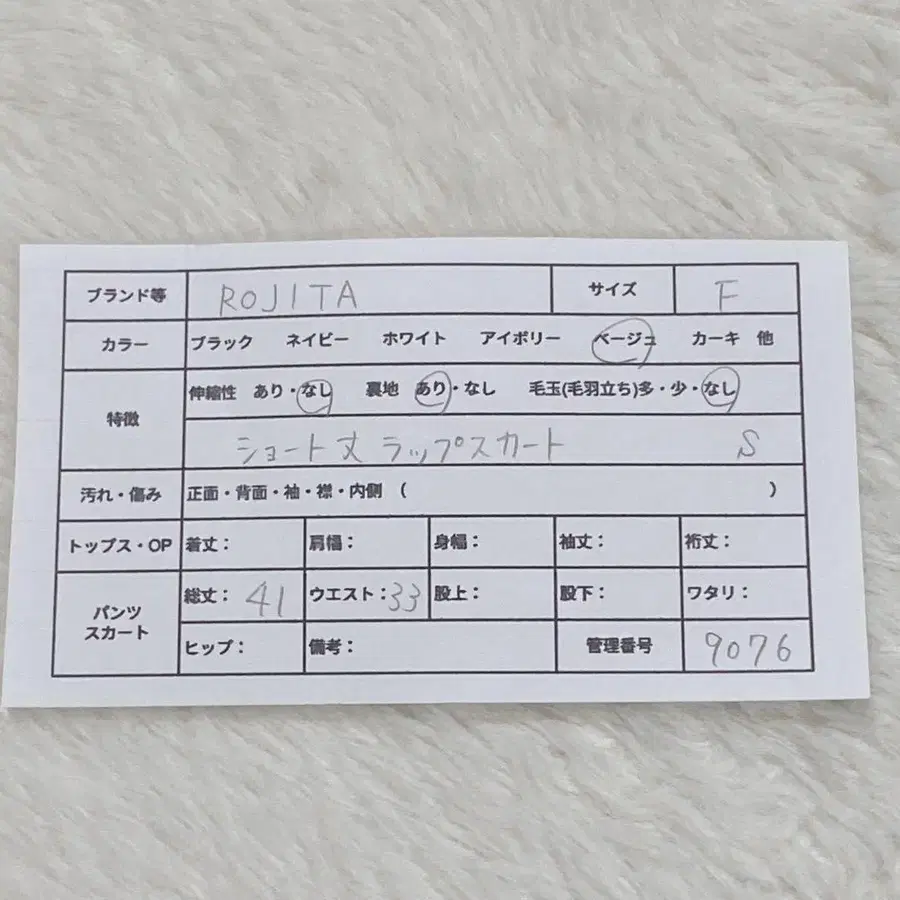 ブランド等 ROJITA サイズ F
カラー ブラック ネイビー ホワイト アイボリー ベージュ カーキ 他
特徴 伸縮性 あり・なし 裏地 あり・なし 毛玉(毛羽立ち)多・少・なし
ショート丈 ラップスカート S
汚れ・傷み 正面・背面・袖・襟・内側 ( )
トップス・OP 着丈: 肩幅: 身幅: 袖丈: 裄丈:
パンツ スカート 総丈: 41 ウエスト:33 股上: 股下: ワタリ:
ヒップ: 備考: 管理番号 9076